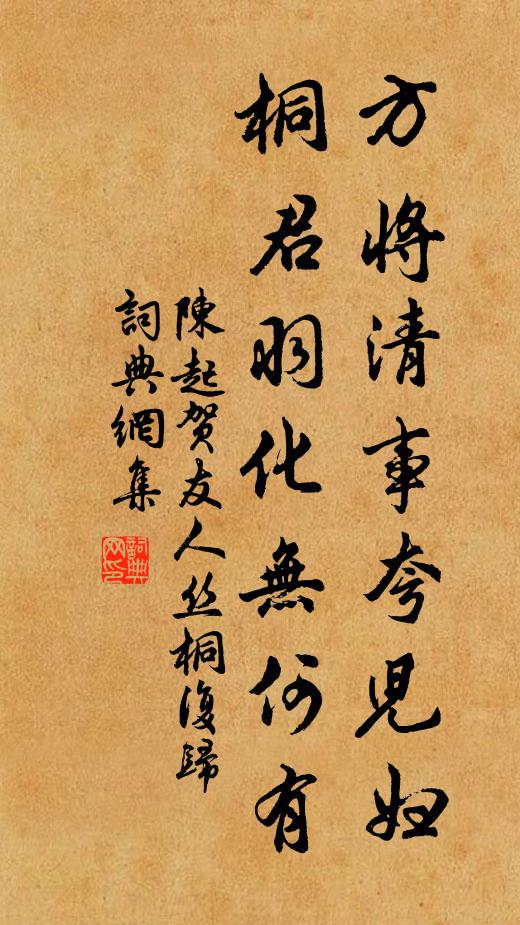 方將清事夸兒婦
桐君羽化無何有
陳起贺友人丝桐復歸
詞典網集
詞典网印